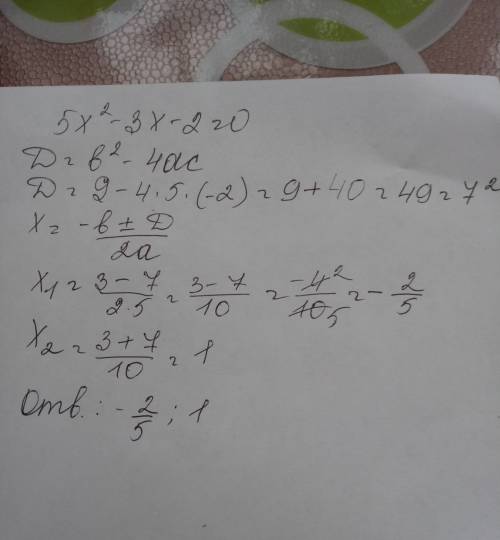 5x² - 3x - 2 = 0
D = b² - 4ac
D = 9 - 4·5·(-2) = 9 + 40 = 49 = 7²
x = -b ± D / 2a
x₁ = 3 - 7 / 2·5 = 3 - 7 / 10 = -4 2 / 10 5 = - 2/5
x₂ = 3 + 7 / 10 = 1
Отв.: - 2/5 ; 1